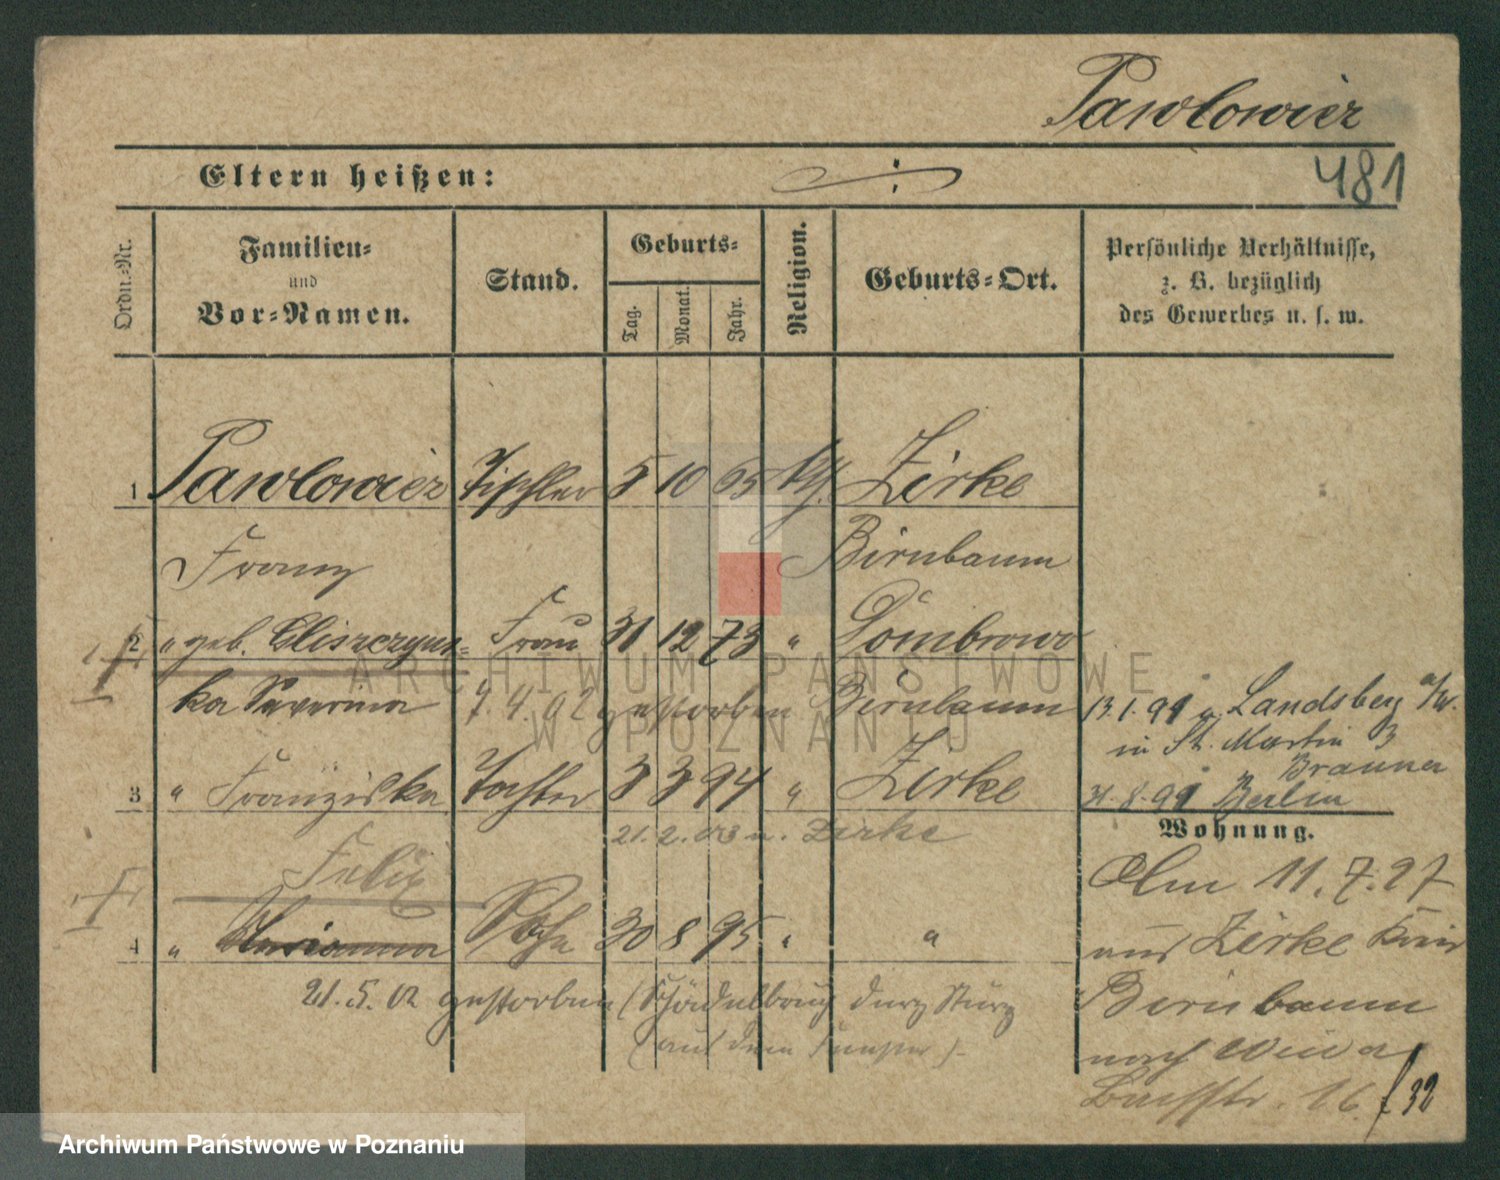 Pawlowicz
481
Eltern heißen:
Ordn.-Nr.
Familien-
und
Vor-Namen.
Stand.
Geburts-
Tag.
Monat.
Jahr.
Religion.
Geburts-Ort.
Persönliche Verhältnisse,
z. B. bezüglich
des Gewerbes u. s. w.
1 Pawlowicz Tischler 5 10 65 kth. Zirke
Franz Birnbaum
2 " geb. Cliszczyns- Frau 31 12 73 " Dombrowo
ka Severina 7.4.02 gestorben Birnbaum
13.1.99 n. Landsberg a/W.
in St. Martin 3
Brauner
3 " Franziska Tochter 3 3 94 " Zirke
31.8.99 Berlin
21.2.03 n. Zirke
Wohnung.
Felix
4 " Sohn 30 8 95 " "
21.5.02 gestorben (Schädelbruch durch Sturz
(aus dem Fenster).
Am 11.7.97
aus Zirke Kreis
Birnbaum
nach
Bachstr. 16. f 32
ARCHIWUM PAŃSTWOWE
W POZNANIU
Archiwum Państwowe w Poznaniu